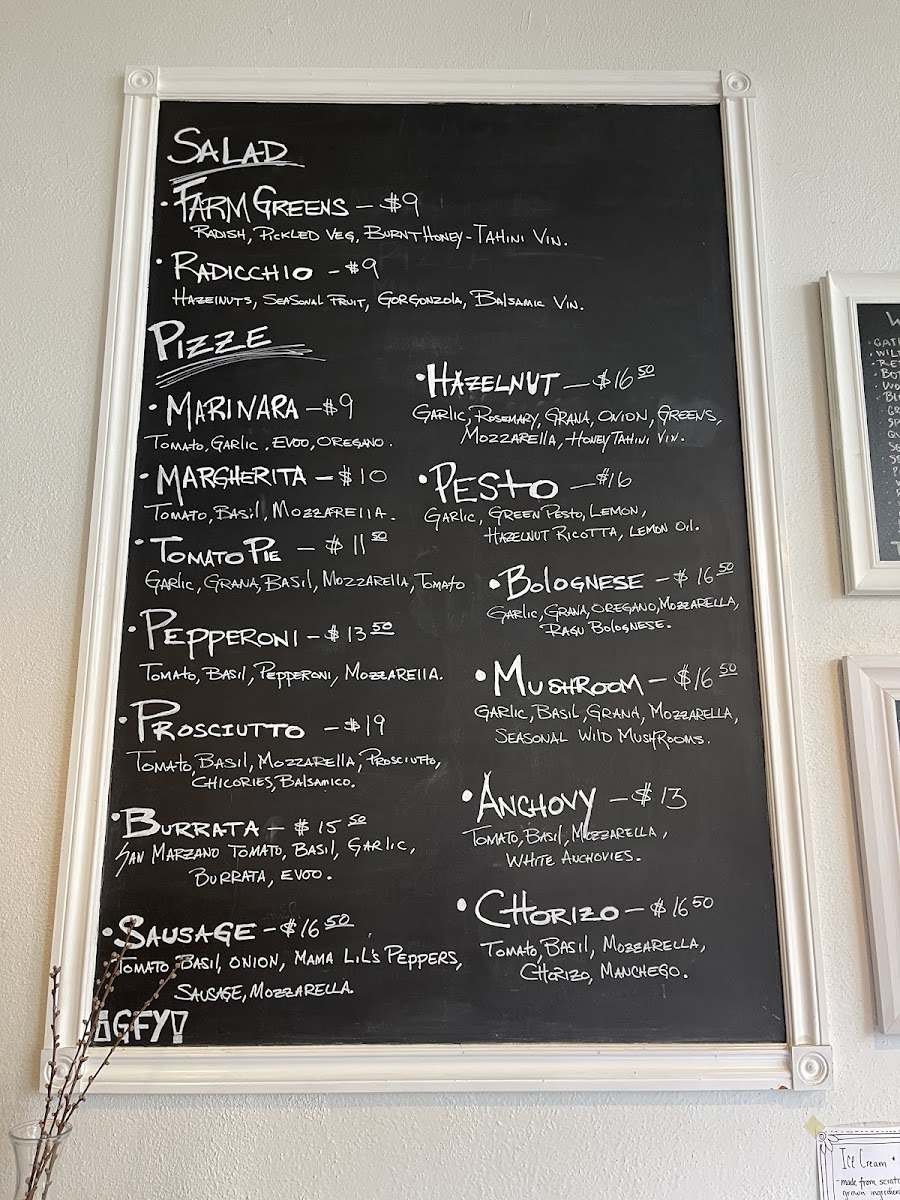 SALAD
• FARM GREENS — $9
RADISH, PICKLED VEG, BURNT HONEY-TAHINI VIN.
• RADICCHIO - $9
HAZELNUTS, SEASONAL FRUIT, GORGONZOLA, BALSAMIC VIN.
PIZZE
• MARINARA - $9
TOMATO, GARLIC, EVOO, OREGANO.
• MARGHERITA - $10
TOMATO, BASIL, MOZZARELLA.
• TOMATO PIE - $11 50
GARLIC, GRANA, BASIL, MOZZARELLA, TOMATO
• PEPPERONI - $13 50
TOMATO, BASIL, PEPPERONI, MOZZARELLA.
• PROSCIUTTO - $19
TOMATO, BASIL, MOZZARELLA, PROSCIUTTO,
CHICORIES, BALSAMICO.
• BURRATA - $15 50
SAN MARZANO TOMATO, BASIL, GARLIC,
BURRATA, EVOO.
• SAUSAGE - $16 50
TOMATO, BASIL, ONION, MAMA LIL'S PEPPERS,
SAUSAGE, MOZZARELLA.
¡GFY!
• HAZELNUT — $16 50
GARLIC, ROSEMARY, GRANA, ONION, GREENS,
MOZZARELLA, HONEY TAHINI VIN.
• PESTO — $16
GARLIC, GREEN PESTO, LEMON,
HAZELNUT RICOTTA, LEMON OIL.
• BOLOGNESE - $16 50
GARLIC, GRANA, OREGANO, MOZZARELLA,
RAGU BOLOGNESE.
• MUSHROOM - $16 50
GARLIC, BASIL, GRANA, MOZZARELLA,
SEASONAL WILD MUSHROOMS.
• ANCHOVY - $13
TOMATO, BASIL, MOZZARELLA,
WHITE ANCHOVIES.
• CHORIZO - $16 50
TOMATO, BASIL, MOZZARELLA,
CHORIZO, MANCHEGO.
Ice Cream
- made from
grown